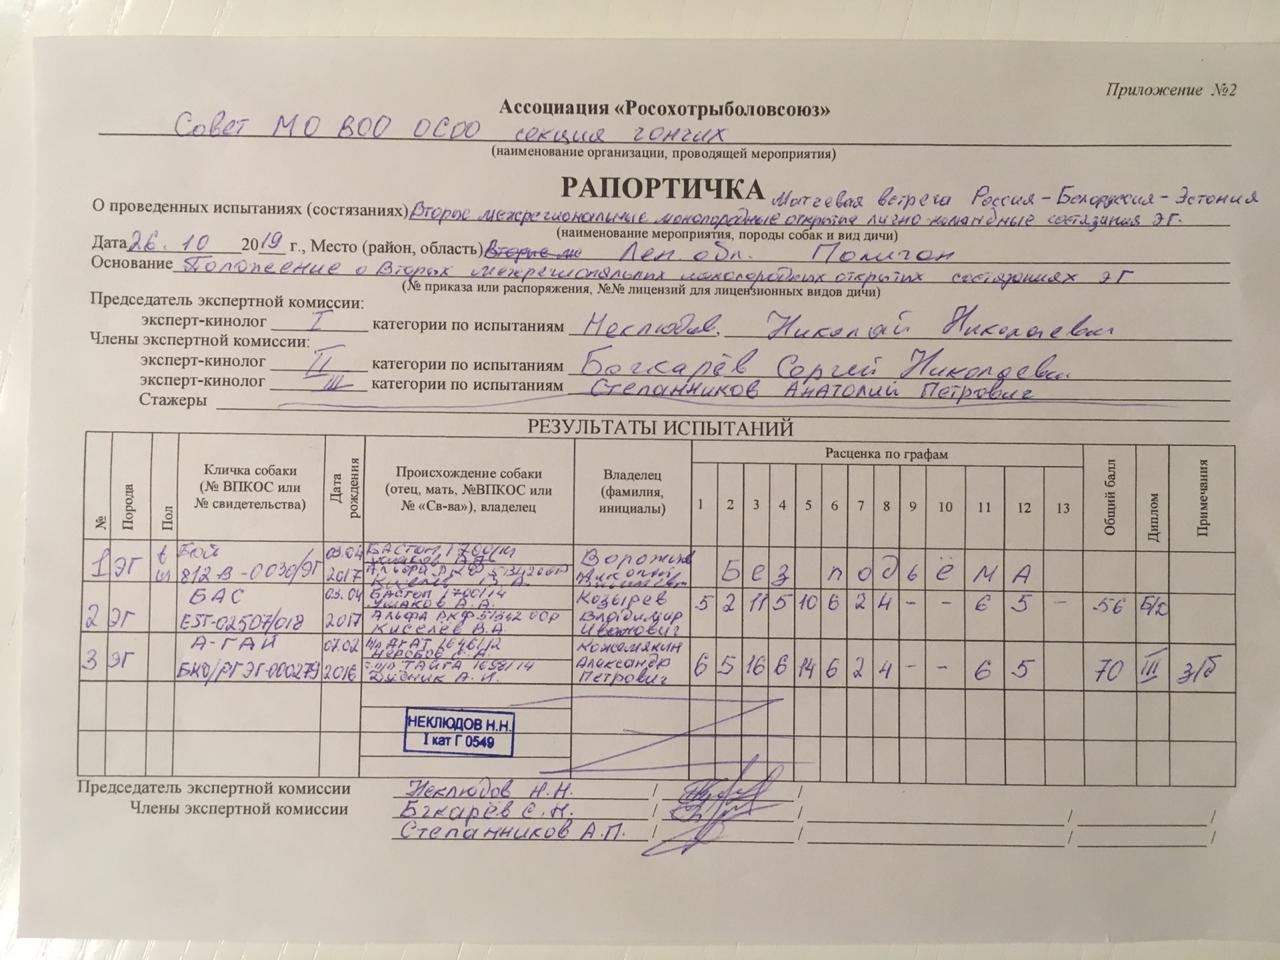 Приложение №2
Ассоциация «Росохотрыболовсоюз»
Совет МО ВОО ОСОО секция гончих
(наименование организации, проводящей мероприятия)
РАПОРТИЧКА
Матчевая встреча Россия-Белоруссия-Эстония
О проведенных испытаниях (состязаниях) Вторые межрегиональные монопородные открытые лично-командные состязания ЭГ.
(наименование мероприятия, породы собак и вид дичи)
Дата 26.10 2019 г., Место (район, область) Лен. обл. Полигон
Основание Положение о Вторых межрегиональных монопородных открытых состязаниях ЭГ
(№ приказа или распоряжения, №№ лицензий для лицензионных видов дичи)
Председатель экспертной комиссии:
эксперт-кинолог I категории по испытаниям Неклюдов Николай Николаевич
Члены экспертной комиссии:
эксперт-кинолог II категории по испытаниям Бочкарёв Сергей Николаевич
эксперт-кинолог III категории по испытаниям Степанников Анатолий Петрович
Стажеры
РЕЗУЛЬТАТЫ ИСПЫТАНИЙ
№ Порода Пол Кличка собаки (№ ВПКОС или № свидетельства) Дата рождения Происхождение собаки (отец, мать, №ВПКОС или № «Св-ва»), владелец Владелец (фамилия, инициалы) Расценка по графам Общий балл Диплом Примечания
1 2 3 4 5 6 7 8 9 10 11 12 13
1 ЭГ Бой 03.04 Бастоп
812 В-0030/ЭГ 2017 Без подъёма
БАС 03.04 Бастоп 1700/14 Козырев
2 ЭГ EST-02507/018 2017 Ушаков А.А. Альфа РКФ Киселев В.А. Владимир Иванович 5 2 11 5 10 6 2 4 - - 6 5 - 56 Б/д
А-ГАЙ 07.02 АГАТ Кожемякин
3 ЭГ БКО/РГЭГ-000279 2016 ТАЙГА 1658/14 Дудник А.И. Александр Петрович 6 5 16 6 14 6 2 4 - - 6 5 70 III з/б
НЕКЛЮДОВ Н.Н.
I кат Г 0549
Председатель экспертной комиссии Неклюдов Н.Н. / /
Члены экспертной комиссии Бчкарёв С.Н. / / / /
Степанников А.П. / / / /